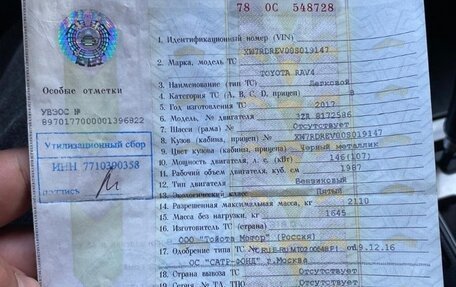 78 ОС 548728
1. Идентификационный номер (VIN)
XW7RDREV00S019147
2. Марка, модель ТС
TOYOTA RAV4
3. Наименование (тип ТС) Легковой
4. Категория ТС (А, В, С, D, прицеп) В
5. Год изготовления ТС 2017
6. Модель, № двигателя 3ZR 8172586
7. Шасси (рама) № Отсутствует
8. Кузов (кабина, прицеп) № XW7RDREV00S019147
9. Цвет кузова (кабины, прицепа) Черный металлик
10. Мощность двигателя, л. с. (кВт) 146(107)
11. Рабочий объем двигателя, куб. см 1987
12. Тип двигателя Бензиновый
13. Экологический класс Пятый
14. Разрешенная максимальная масса, кг 2110
15. Масса без нагрузки, кг 1645
16. Изготовитель ТС (страна)
ООО "Тойота Мотор" (Россия)
17. Одобрение типа ТС № от 19.12.16
ОС "САТР-ФОНД" г.Москва
18. Страна вывоза ТС Отсутствует
19. Серия, № ТД, ТПО Отсутствует
Особые отметки
УВЭОС №
8970177000001396822
Утилизационный сбор
ИНН 7710390358
подпись